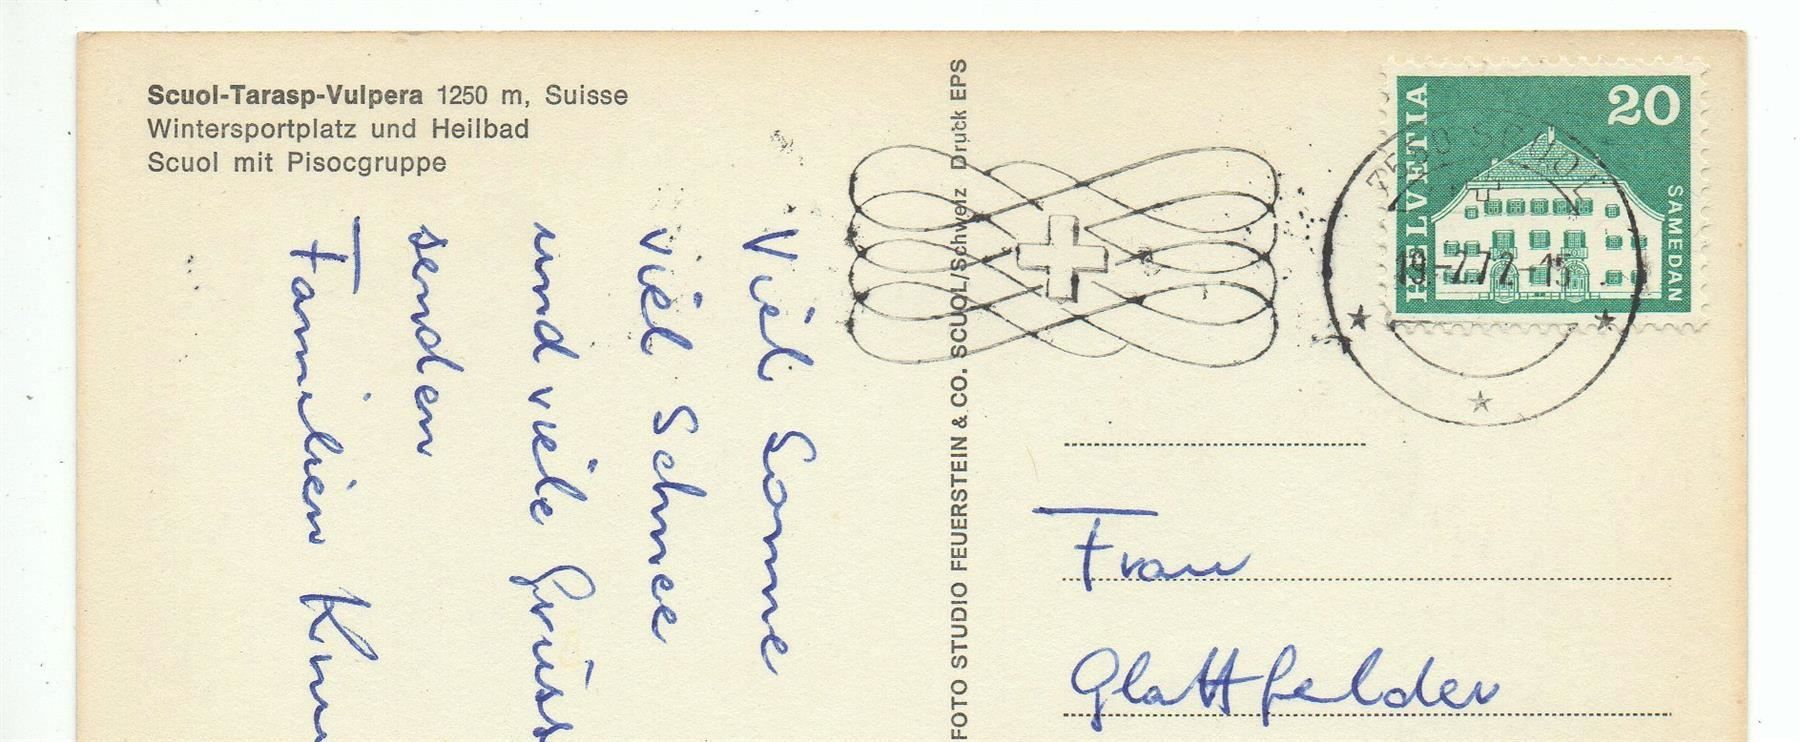 Scuol-Tarasp-Vulpera 1250 m, Suisse
Wintersportplatz und Heilbad
Scuol mit Pisocgruppe
Viel Sonne
viel Schnee
und viele Grüsse
senden
Familien
FOTO STUDIO FEUERSTEIN & CO. SCUOL/Schweiz Druck EPS
HELVETIA
20
SAMEDAN
7550 SCUOL
19-2.72-15
Frau
Glattfelder